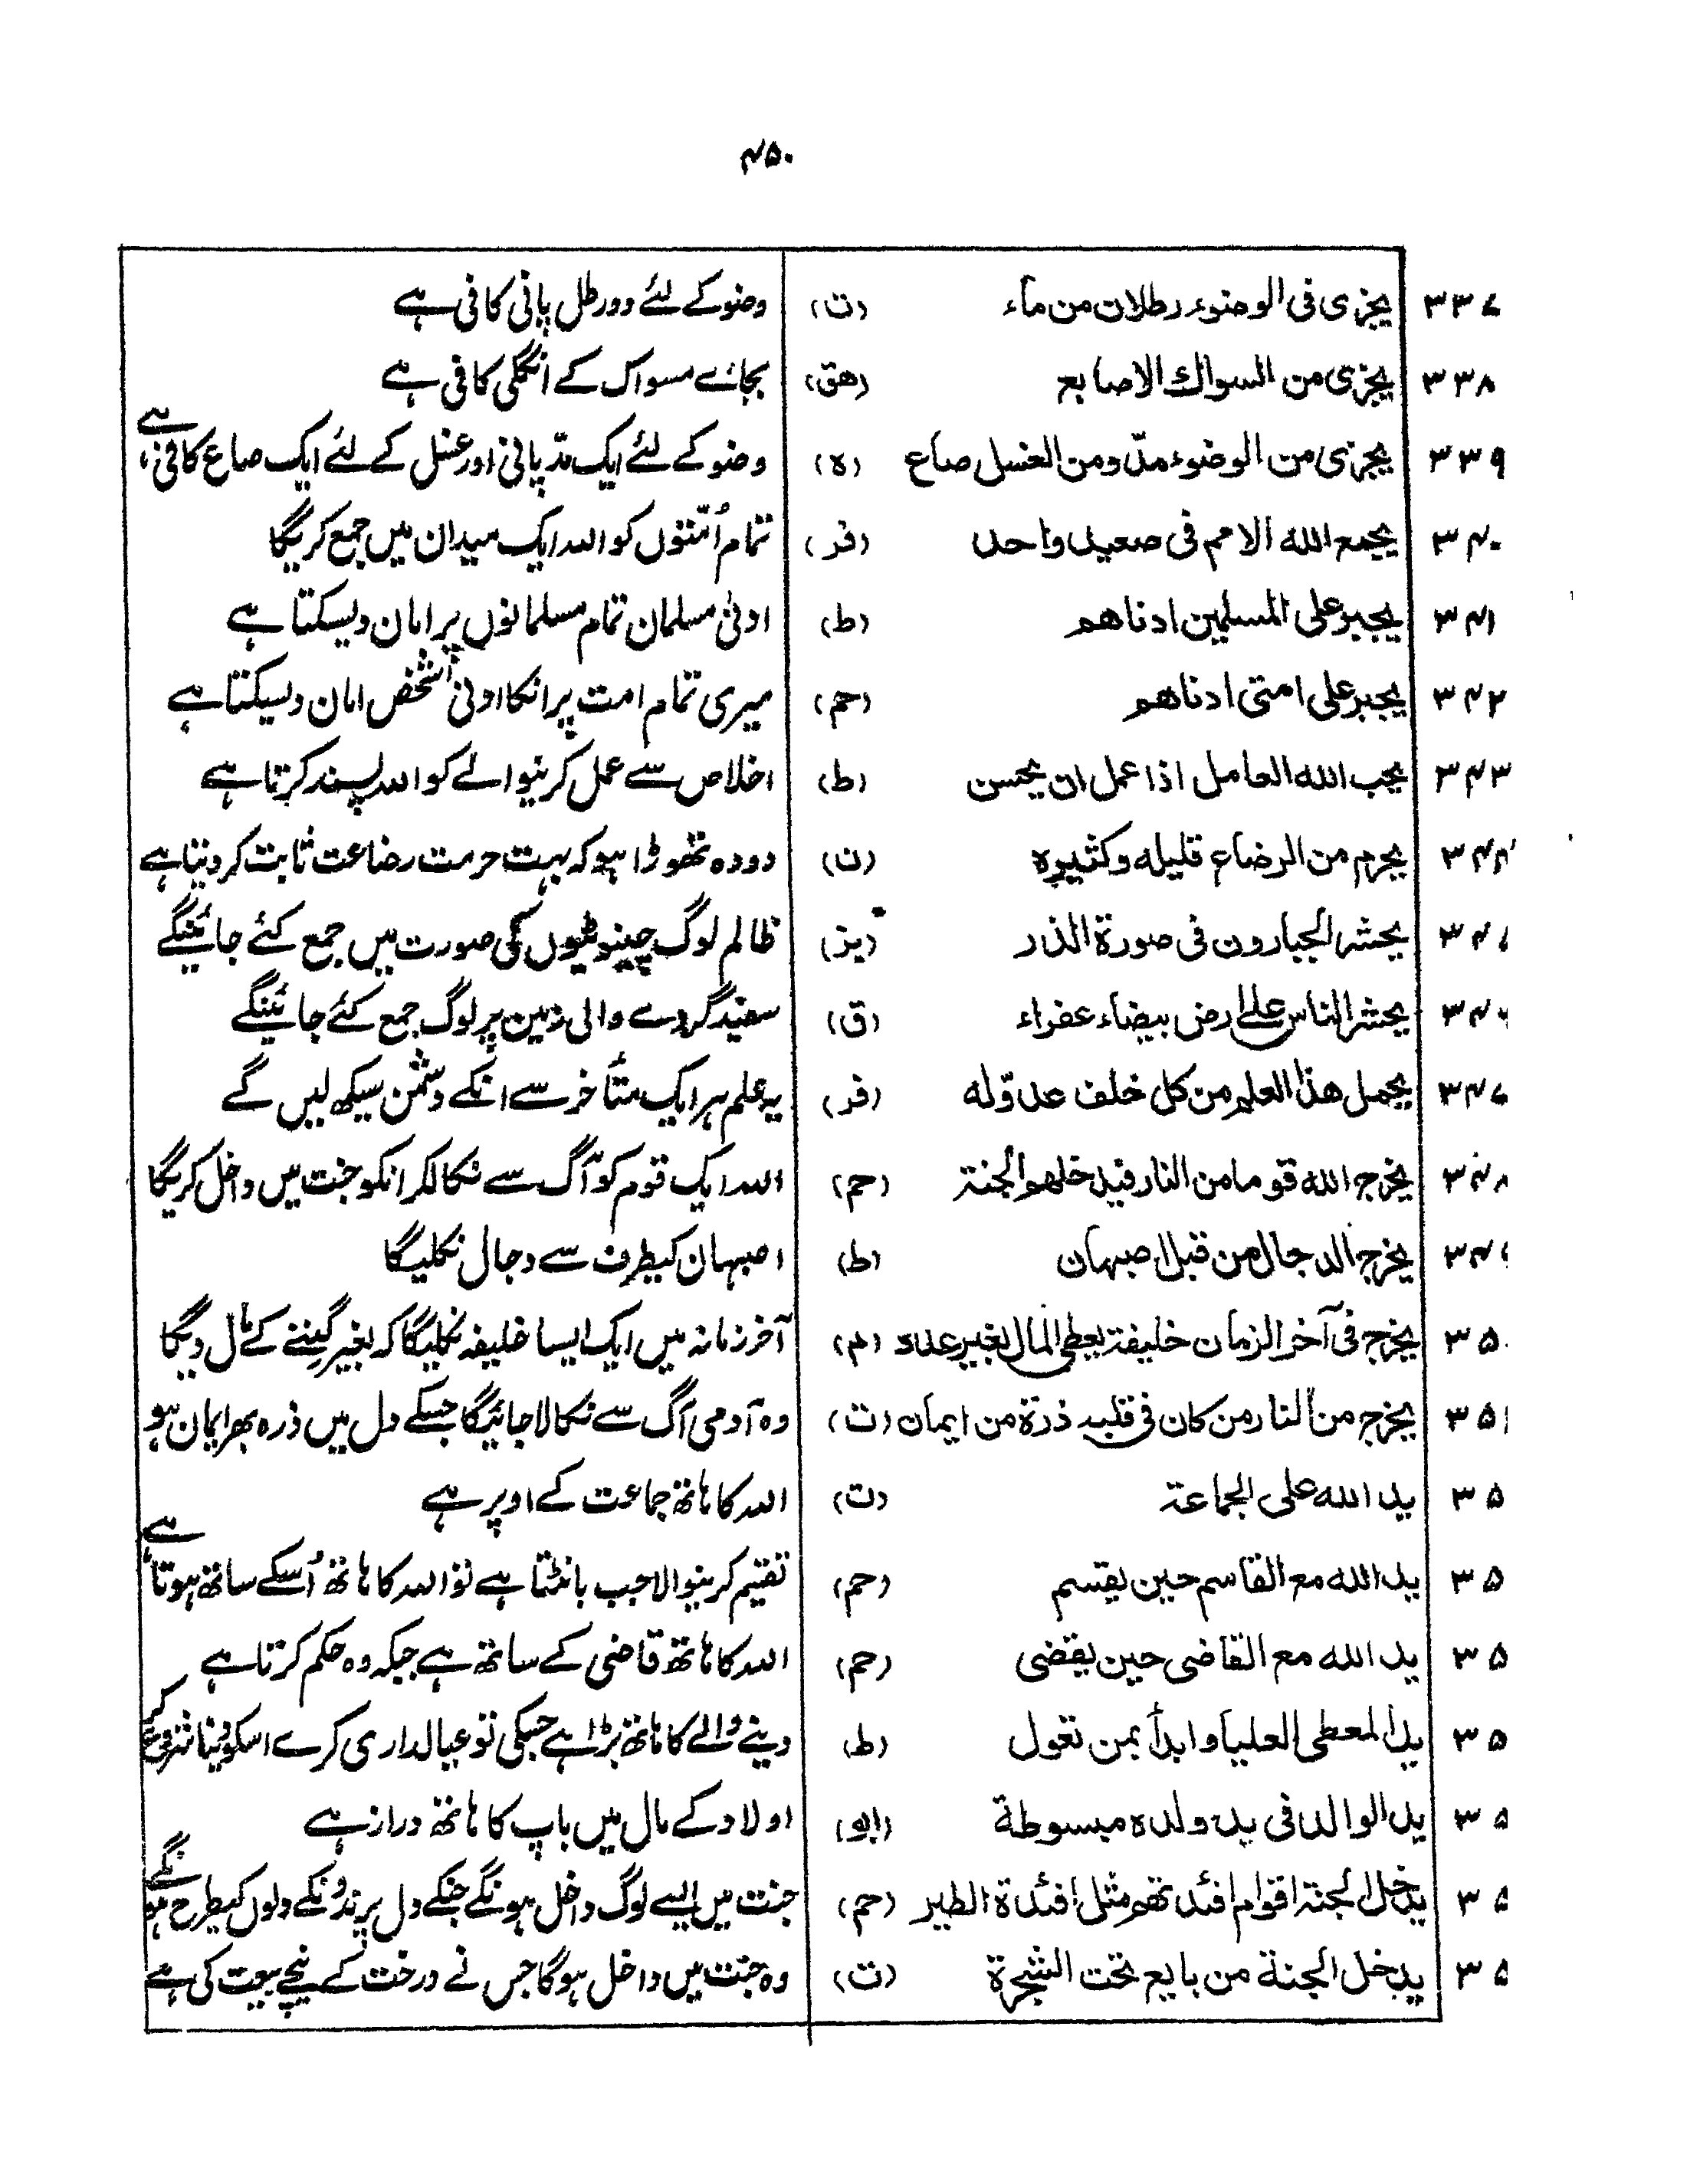 ۴۵۰
۳۳۷ یجزی فی الوضوء رطلان من ماء (ت) وضو کے لئے دو رطل پانی کافی ہے
۳۳۸ یجزی من السواك الاصابع (هق) بجائے مسواک کے انگلی کافی ہے
۳۳۹ یجزی من الوضوء مدّ ومن الغسل صاع (ه) وضو کے لئے ایک مدّ پانی اور غسل کے لئے ایک صاع کافی ہے
۳۴۰ یجمع الله الامم فی صعید واحد (فر) تمام اُمتوں کو اللہ ایک میدان میں جمع کریگا
۳۴۱ یجیر علی المسلمین ادناهم (ط) ادنیٰ مسلمان تمام مسلمانوں پر امان دیسکتا ہے
۳۴۲ یجیر علی امتی ادناهم (حم) میری تمام امت پر انکا ادنیٰ شخص امان دیسکتا ہے
۳۴۳ یحب الله العامل اذا عمل ان یحسن (ط) اخلاص سے عمل کرنیوالے کو اللہ پسند کرتا ہے
۳۴۴ یحرم من الرضاع قلیله وکثیره (ن) دودہ تھوڑا ہو کہ بہت حرمت رضاعت ثابت کر دیتا ہے
۳۴ یحشر الجبارون فی صورة الذر (یز) ظالم لوگ چینوٹیوں کی صورت میں جمع کئے جائینگے
۳۴ یحشر الناس علی ارض بیضاء عفراء (ق) سفید گرد والی زمین پر لوگ جمع کئے جائینگے
۳۴۷ یحمل هذا العلم من کل خلف عدوّله (فر) یہ علم ہر ایک متأخر سے انکے دشمن سیکھ لیں گے
۳۴۸ یخرج الله قوما من النار فیدخلهم الجنة (حم) اللہ ایک قوم کو آگ سے نکالکر انکو جنت میں داخل کریگا
۳۴۹ یخرج الدجال من قبل اصبهان (ط) اصبہان کیطرف سے دجال نکلیگا
۳۵۰ یخرج فی آخر الزمان خلیفة یعطی المال بغیر عدد (م) آخر زمانہ میں ایک ایسا خلیفہ نکلیگا کہ بغیر گننے کے مال دیگا
۳۵۱ یخرج من النار من کان فی قلبه ذرة من ایمان (ت) وہ آدمی آگ سے نکالا جائیگا جسکے دل میں ذرہ بھر ایمان ہو
۳۵ ید الله علی الجماعة (ت) اللہ کا ہاتھ جماعت کے اوپر ہے
۳۵ ید الله مع القاسم حین یقسم (حم) تقسیم کرنیوالا جب بانٹتا ہے تو اللہ کا ہاتھ اُسکے ساتھ ہوتا ہے
۳۵ ید الله مع القاضی حین یقضی (حم) اللہ کا ہاتھ قاضی کے ساتھ ہے جبکہ وہ حکم کرتا ہے
۳۵ ید المعطی العلیا وابدأ بمن تعول (ط) دینے والے کا ہاتھ بڑا ہے جسکی تو عیالداری کرے اسکو دینا شروع کر
۳۵ ید الوالد فی ید ولده مبسوطة (ابو) اولاد کے مال میں باپ کا ہاتھ دراز ہے
۳۵ یدخل الجنة اقوام افئدتهم مثل افئدة الطیر (حم) جنت میں ایسے لوگ داخل ہونگے جنکے دل پرندونکے دلوں کیطرح ہونگے
۳۵ یدخل الجنة من بایع تحت الشجرة (ت) وہ جنت میں داخل ہوگا جس نے درخت کے نیچے بیعت کی ہے